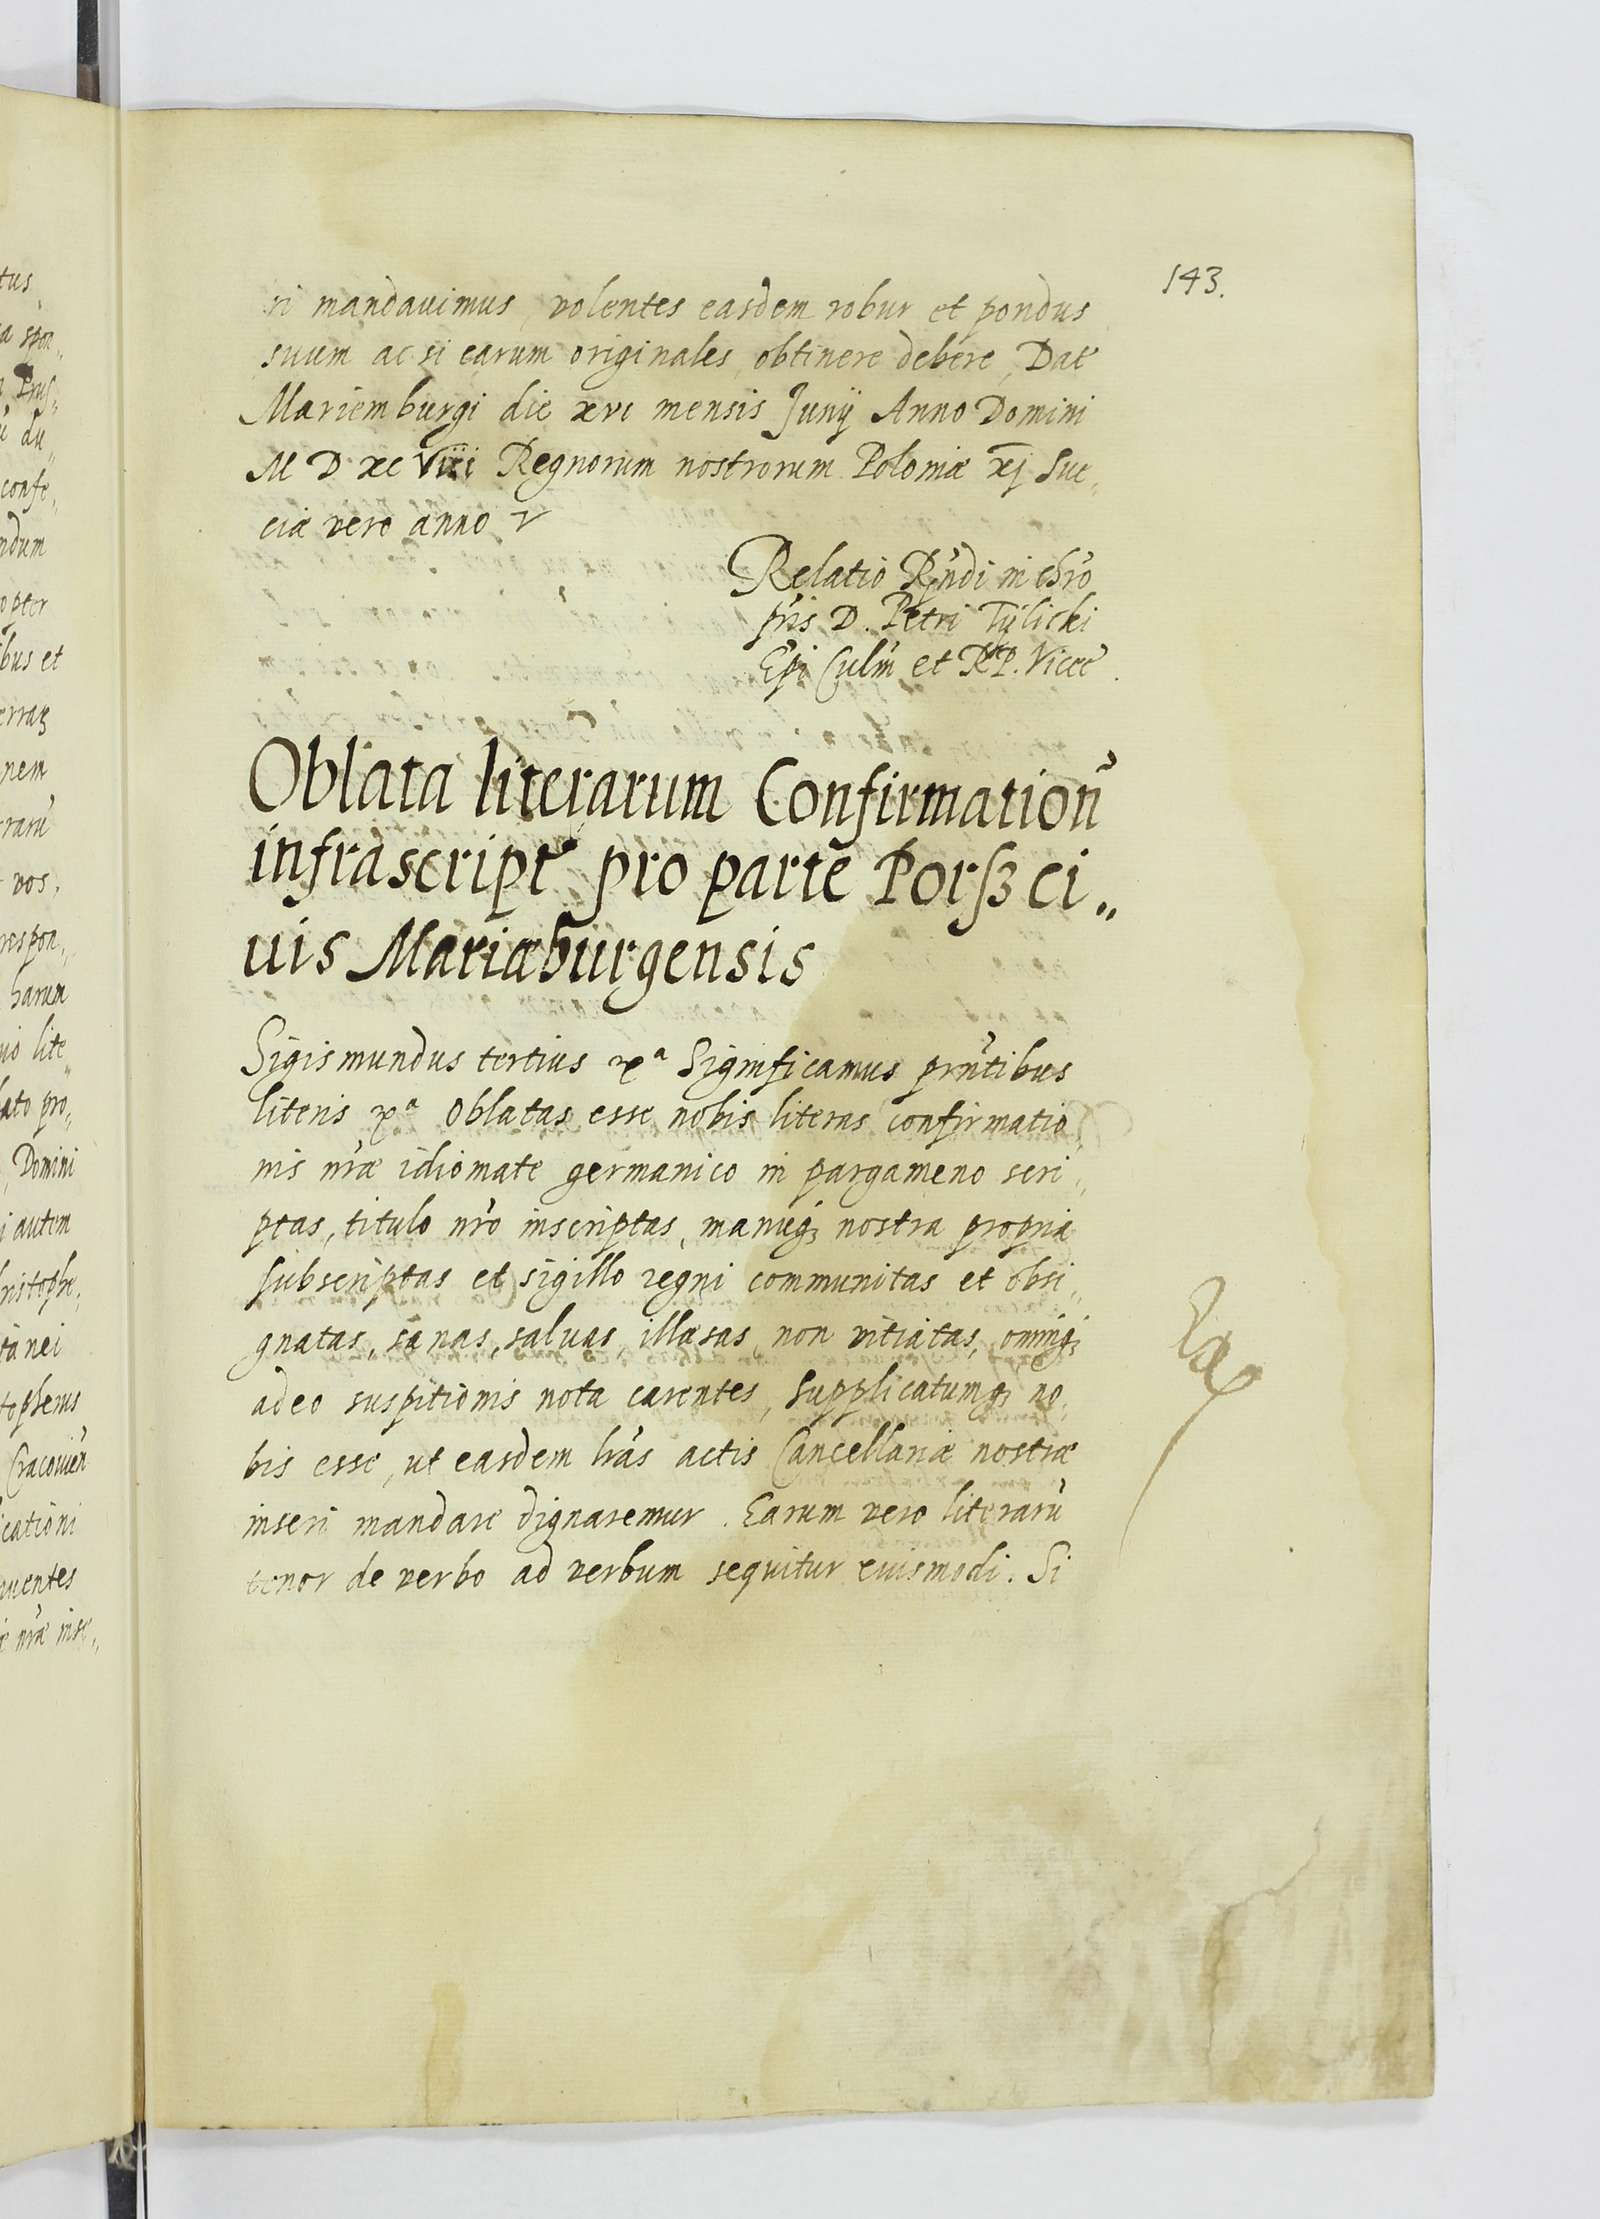 143.
ri mandauimus, volentes easdem robur et pondus
suum ac si earum originales, obtinere debere, Dat
Mariemburgi die xvi mensis Junij Anno Domini
M D xc Viii Regnorum nostrorum Poloniæ xj Sue„
ciæ vero anno v
Relatio Rñdi in chro
pris D. Petri Tylicki
Epi Culm et R. P. Vicec
Oblata literarum Confirmation̄
infrascript pro parte Porß ci„
uis Mariæburgensis
Sigismundus tertius xª Significamus prñtibus
literis xª Oblatas esse nobis literas confirmatio„
nis nræ idiomate germanico in pargameno scri„
ptas, titulo nrõ inscriptas, manuq; nostra propria
subscriptas et sigillo regni communitas et obsi„
gnatas, sanas, saluas, illæsas, non vitiatas, omniq;
adeo suspitionis nota carentes, Supplicatumq; no„
bis esse, ut easdem lrãs actis Cancellariæ nostræ
inseri mandare dignaremur. Earum vero literarũ
tenor de verbo ad verbum sequitur eiusmodi. Si
tus
a spon„
Prus„
du„
confe„
ndum
opter
bus et
nem
rarũ
vos,
respon„
harum
lite„
ato pro„
Domini
autem
hristophe„
tanei
tophorus
Cracouien
cationi
uentes
nræ inse„